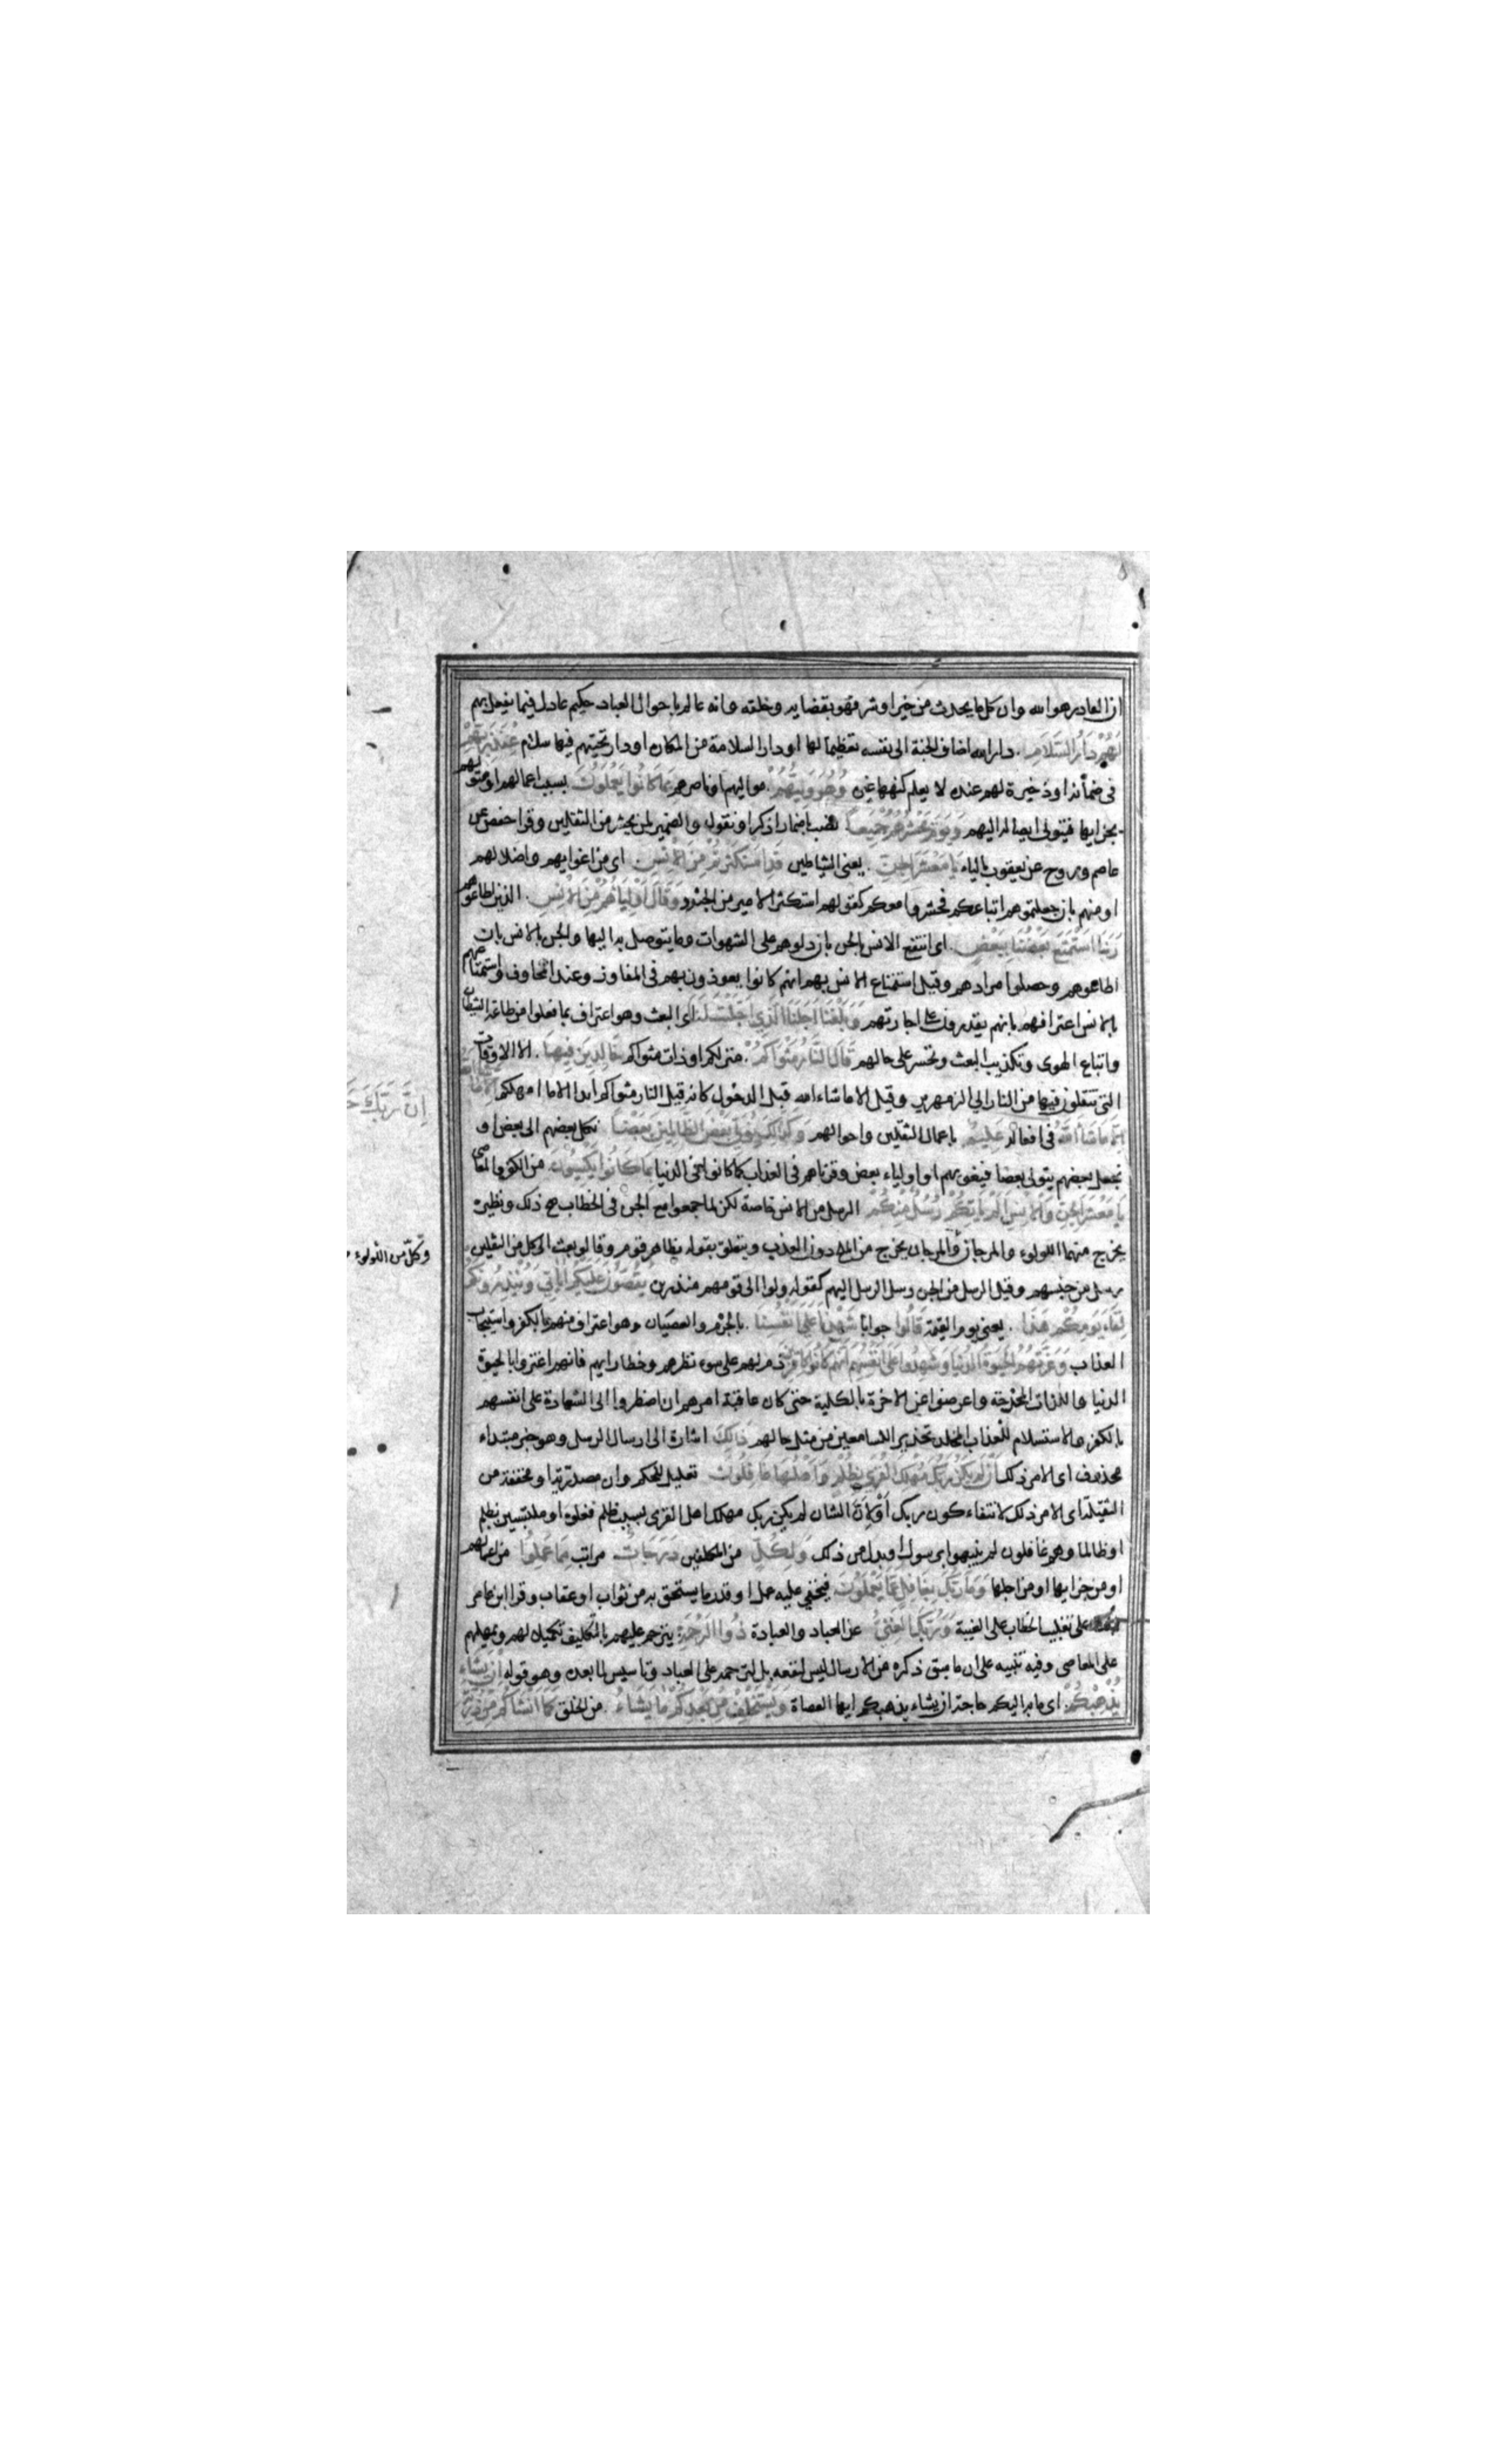 ان القادر هو الله وان كل ما يحدث من خير او شر فهو بقضايه وخلقه وانه عالم باحوال العباد حكيم عادل فيما يفعل بهم
لَهُمْ دَارُ السَّلَامِ . دار الله اضاف الجنة الى نفسه تعظيما لها او دار السلامة من المكاره او دار تحيتهم فيها سلام عِنْدَ رَبِّهِمْ
فى ضمانه او ذخيرة لهم عنده لا يعلم كنهها غيره وَهُوَ وَلِيُّهُمْ . مواليهم او ناصرهم بِمَا كَانُوا يَعْمَلُونَ بسبب اعمالهم او متوليهم
بجزايها فيتولى ايصاله اليهم وَيَوْمَ نَحْشُرُهُمْ جَمِيعًا . نصب باضمار اذكر او نقول والضمير لمن يحشر من الثقلين وقرا حفص عن
عاصم وروح عن يعقوب بالياء يَا مَعْشَرَ الْجِنِّ . يعنى الشياطين قَدِ اسْتَكْثَرْتُمْ مِنَ الْاِنْسِ . اى من اغوايهم واضلالهم
او منهم بان جعلتموهم اتباعكم فحشروا معكم كقولهم استكثر الامير من الجنود وَقَالَ اَوْلِيَاؤُهُمْ مِنَ الْاِنْسِ . الذين اطاعوهم
رَبَّنَا اسْتَمْتَعَ بَعْضُنَا بِبَعْضٍ . اى انتفع الانس بالجن بان دلوهم على الشهوات وما يتوصل به اليها والجن بالانس بان
اطاعوهم وحصلوا مرادهم وقيل استمتاع الانس بهم انهم كانوا يعوذون بهم فى المفاوز وعند المخاوف واستمتاعهم
بالانس اعترافهم بانهم يقدرون على اجارتهم وَبَلَغْنَا اَجَلَنَا الَّذِى اَجَّلْتَ لَنَا اى البعث وهو اعتراف بما فعلوا من طاعة الشيطان
واتباع الهوى وتكذيب البعث وتحسر على حالهم قَالَ النَّارُ مَثْوَاكُمْ . منزلكم او ذات مثواكم خَالِدِينَ فِيهَا . الا الاوقات
التى ينقلون فيها من النار الى الزمهرير وقيل الا ما شاء الله قبل الدخول كانه قيل النار مثواكم ابدا الا ما امهلكم
فى افعاله عَلِيمٌ باعمال الثقلين واحوالهم وَكَذَلِكَ نُوَلِّى بَعْضَ الظَّالِمِينَ بَعْضًا نكل بعضهم الى بعض او
نجعل بعضهم يتولى بعضا فيغويهم او اولياء بعض وقرناهم فى العذاب كما كانوا فى الدنيا بِمَا كَانُوا يَكْسِبُونَ من الكفر والمعاصى
يَا مَعْشَرَ الْجِنِّ وَالْاِنْسِ اَلَمْ يَاْتِكُمْ رُسُلٌ مِنْكُمْ الرسل من الانس خاصة لكن لما جمعوا مع الجن فى الخطاب صح ذلك ونظيره
يخرج منهما اللولوء والمرجان والمرجان يخرج من الملح دون العذب وتعلق بقوله بظاهر قوم وقالوا بعث الى كل من الثقلين
رسل من جنسهم وقيل الرسل من الجن رسل الرسل اليهم كقوله ولوا الى قومهم منذرين يَقُصُّونَ عَلَيْكُمْ اٰيَاتِى وَيُنْذِرُونَكُمْ
لِقَاءَ يَوْمِكُمْ هَذَا . يعنى يوم القيمة قَالُوا جوابا شَهِدْنَا عَلَى اَنْفُسِنَا . بالجرم والعصيان وهو اعتراف منهم بالكفر واستيجاب
العذاب وَغَرَّتْهُمُ الْحَيٰوةُ الدُّنْيَا وَشَهِدُوا عَلَى اَنْفُسِهِمْ اَنَّهُمْ كَانُوا كَافِرِينَ ذم لهم على سوء نظرهم وخطا رايهم فانهم اغتروا بالحيوة
الدنيا واللذات المخدجة واعرضوا عن الاخرة بالكلية حتى كان عاقبة امرهم ان اضطروا الى الشهادة على انفسهم
بالكفر والاستسلام للعذاب المخلد تحذيرا للسامعين من مثل حالهم ذَلِكَ اشارة الى ارسال الرسل وهو خبر مبتداء
محذوف اى الامر ذلك اَنْ لَمْ يَكُنْ رَبُّكَ مُهْلِكَ الْقُرَى بِظُلْمٍ وَاَهْلُهَا غَافِلُونَ تعليل للحكم وان مصدرية او مخففة من
الثقيلة اى الامر ذلك لانتفاء كون ربك او لان الشان لم يكن ربك مهلك اهل القرى بسبب ظلم فعلوه او ملتبسين بظلم
او ظالما وهم غافلون لم ينبهوا برسول او بدل من ذلك وَلِكُلٍّ من المكلفين دَرَجَاتٌ مراتب مِمَّا عَمِلُوا من اعمالهم
او من جزايها او من اجلها وَمَا رَبُّكَ بِغَافِلٍ عَمَّا يَعْمَلُونَ فيخفى عليه عمل او قدر ما يستحق به من ثواب او عقاب وقرا ابن عامر
على تغليب الخطاب على الغيبة وَرَبُّكَ الْغَنِىُّ عن العباد والعبادة ذُو الرَّحْمَةِ يترحم عليهم بالتكليف تكميلا لهم ويمهلهم
على المعاصى وفيه تنبيه على ان ما سبق ذكره من الارسال ليس لنفعه بل لترحمه على العباد وتاسيس لما بعده وهو قوله اِنْ يَشَاْ
يُذْهِبْكُمْ . اى ما به اليكم حاجة ان يشاء يذهبكم ايها العصاة وَيَسْتَخْلِفْ مِنْ بَعْدِكُمْ مَا يَشَاءُ . من الخلق كَمَا اَنْشَاَكُمْ مِنْ ذُرِّيَّةِ
اِنَّ رَبَّكَ
وكل من اللولوء